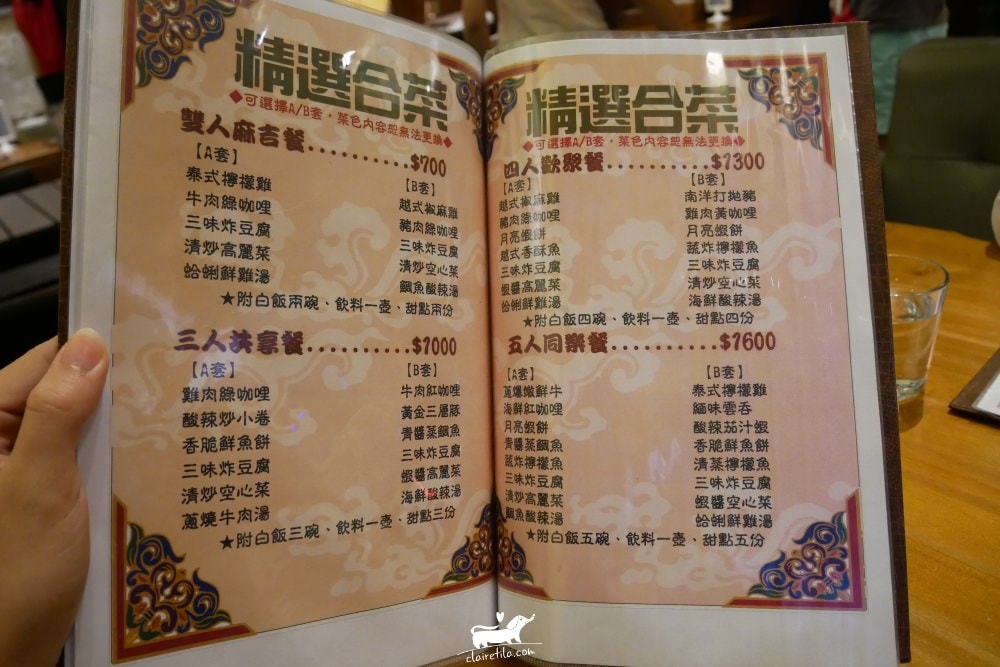 精選合菜
◆可選擇A/B套，菜色內容恕無法更換◆
雙人麻吉餐..........$700
【A套】
泰式檸檬雞
牛肉綠咖哩
三味炸豆腐
清炒高麗菜
蛤蜊鮮雞湯
【B套】
越式椒麻雞
豬肉綠咖哩
三味炸豆腐
清炒空心菜
鯛魚酸辣湯
★附白飯兩碗、飲料一壺、甜點兩份
三人共享餐..........$1000
【A套】
雞肉綠咖哩
酸辣炒小卷
香脆鮮魚餅
三味炸豆腐
清炒空心菜
蔥燒牛肉湯
【B套】
牛肉紅咖哩
黃金三層豚
青醬蒸鯛魚
三味炸豆腐
蝦醬高麗菜
海鮮酸辣湯
★附白飯三碗、飲料一壺、甜點三份
精選合菜
◆可選擇A/B套，菜色內容恕無法更換◆
四人歡聚餐..........$1300
【A套】
越式椒麻雞
豬肉綠咖哩
月亮蝦餅
越式香酥魚
三味炸豆腐
蝦醬高麗菜
蛤蜊鮮雞湯
【B套】
南洋打拋豬
雞肉黃咖哩
月亮蝦餅
蔬炸檸檬魚
三味炸豆腐
清炒空心菜
海鮮酸辣湯
★附白飯四碗、飲料一壺、甜點四份
五人同樂餐..........$1600
【A套】
蔥爆嫩鮮牛
海鮮紅咖哩
月亮蝦餅
青醬蒸鯛魚
蔬炸檸檬魚
三味炸豆腐
清炒高麗菜
鯛魚酸辣湯
【B套】
泰式檸檬雞
緬味雲吞
酸辣茄汁蝦
香脆鮮魚餅
清蒸檸檬魚
三味炸豆腐
蝦醬空心菜
蛤蜊鮮雞湯
★附白飯五碗、飲料一壺、甜點五份
clairetila.com